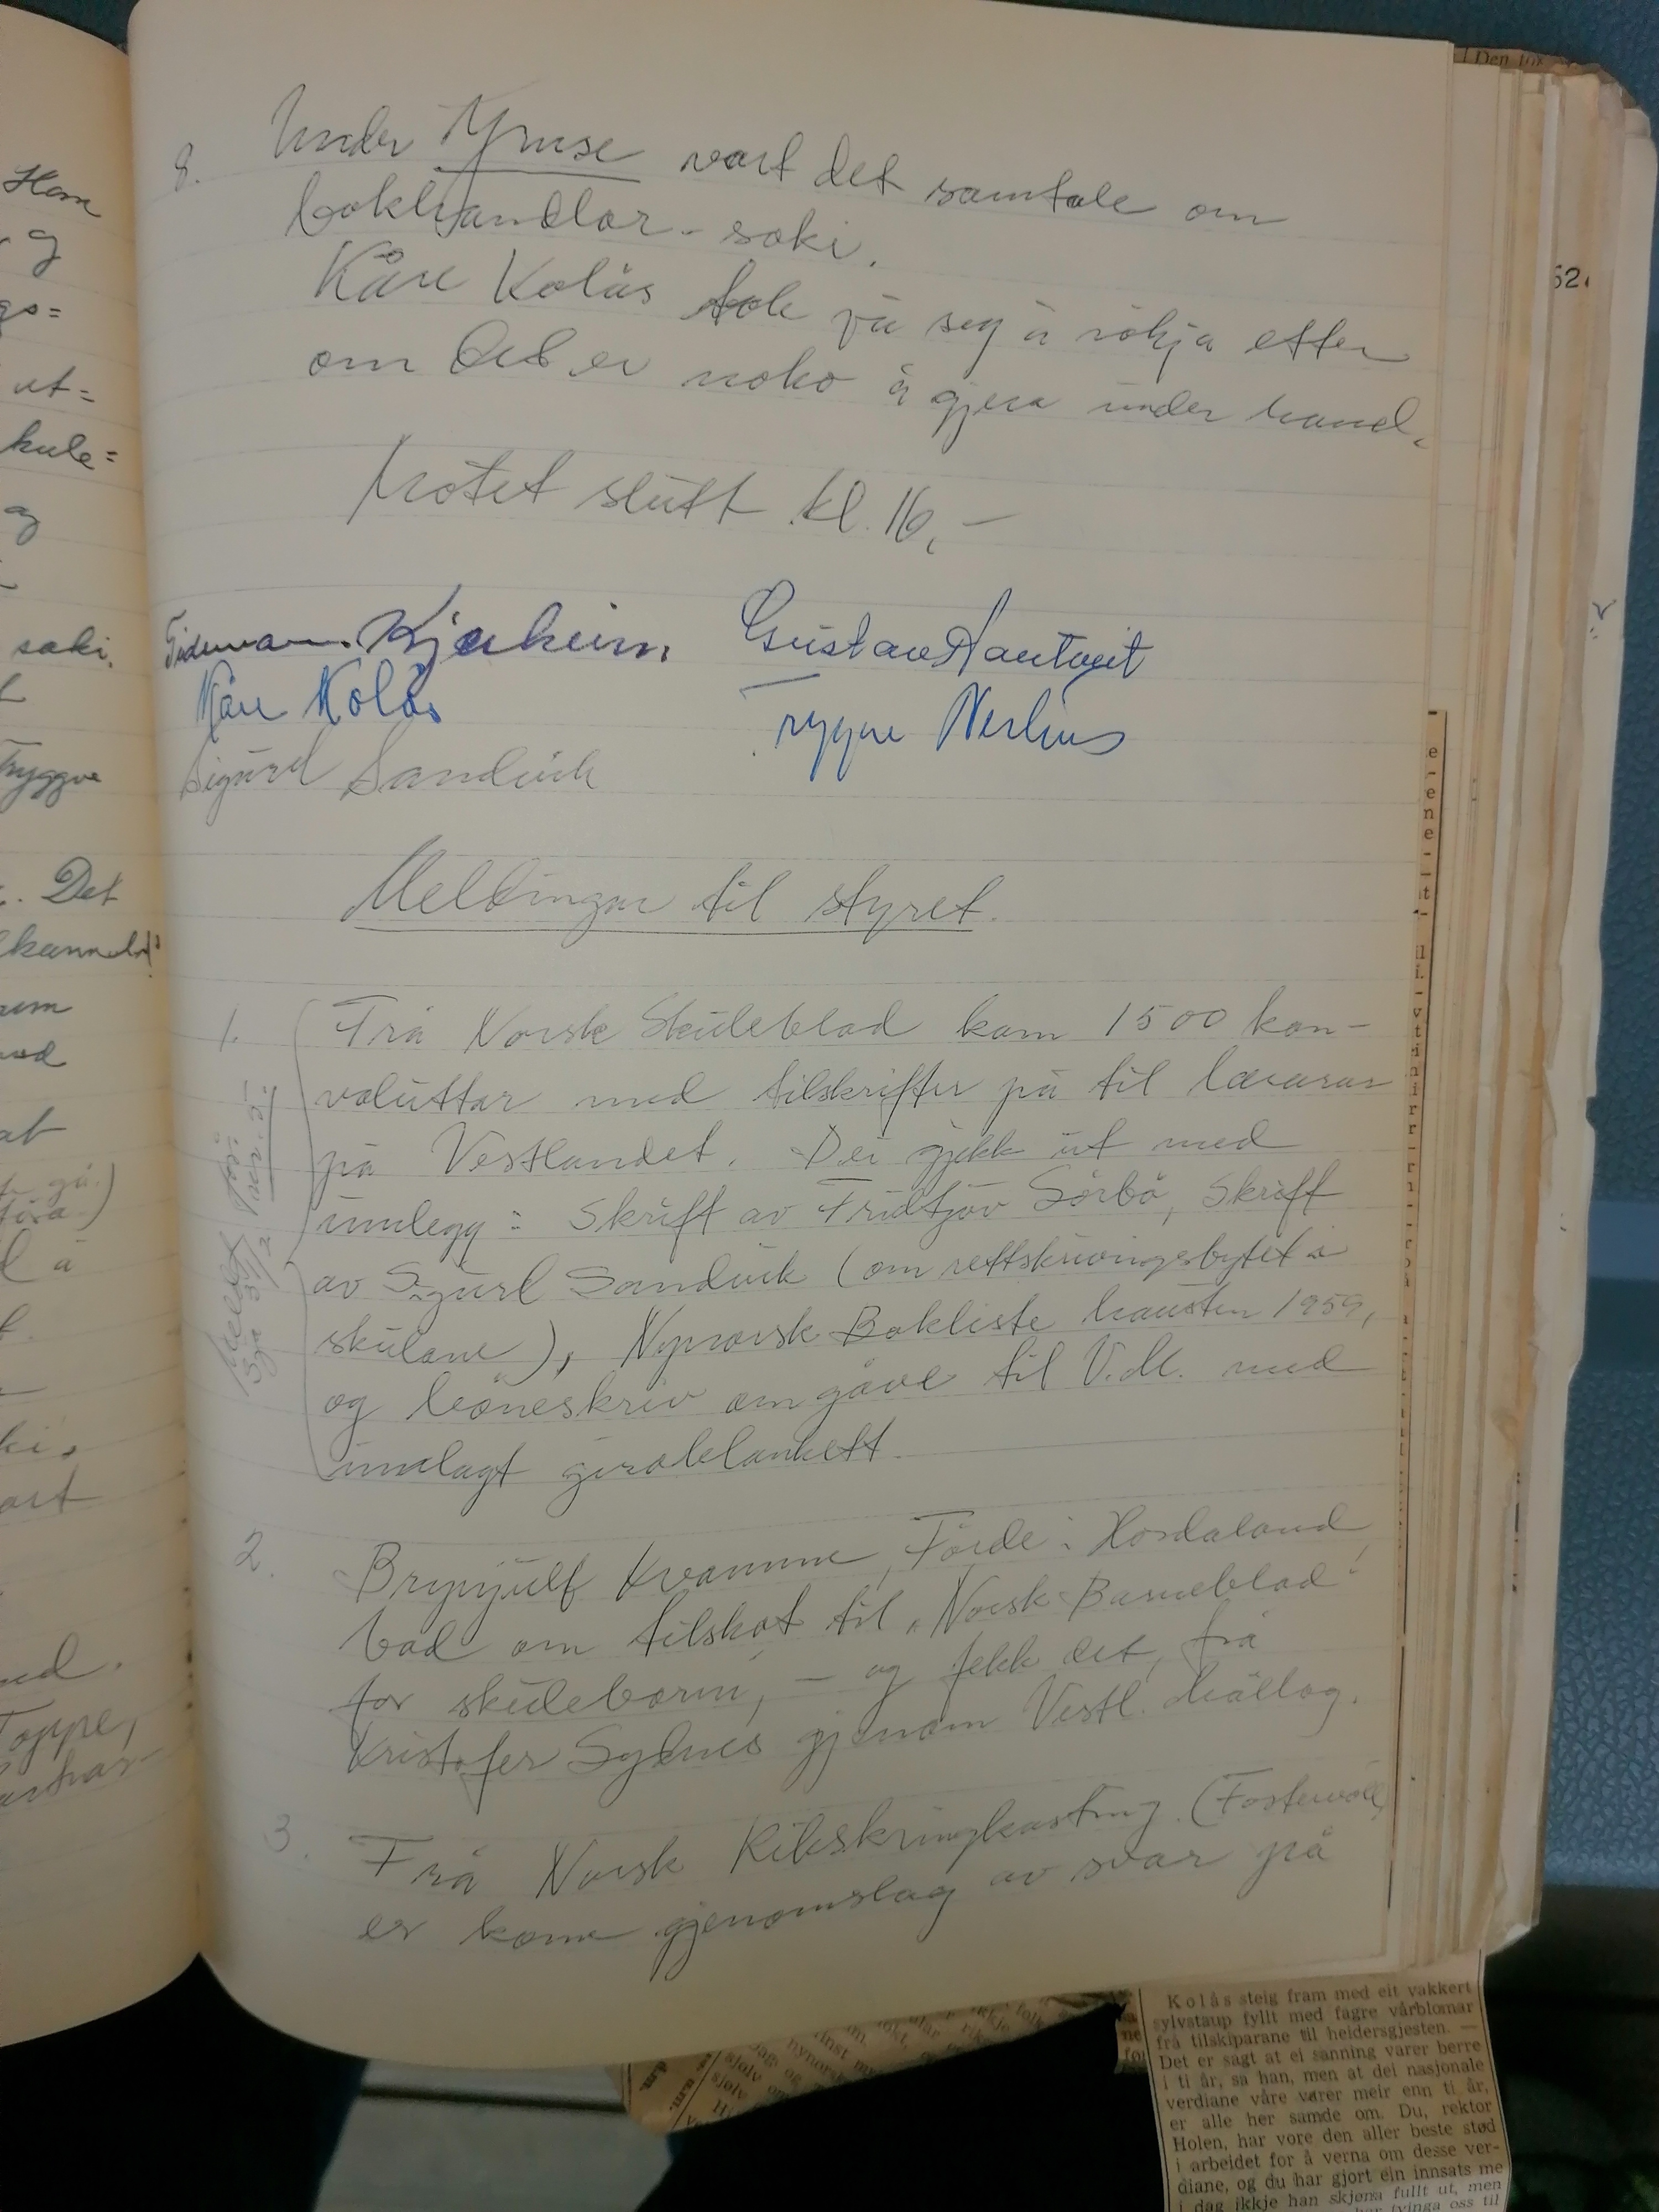 Ham
og
ut=
kule=
og
saki.
Tryggve
. Det
um
at
l å
ki,
art
Toppe,
8. Under Ymse vart det samtale om
bokhandlar-saki.
Kåre Kolås tok på seg å røkja etter
om det er noko å gjera under hand.
Møtet slutt kl. 16,-
Kjerheim Gustav Nautveit
Kåre Kolås Trygve Nerhus
Sigurd Sandvik
Meldingar til styret.
1. Frå Norsk Skuleblad kom 1500 kon-
voluttar med tilskrifter på til lærarar
på Vestlandet. Dei gjekk ut med
innlegg: Skrift av Fridtjov Sørbø, Skrift
av Sigurd Sandvik (om rettskrivingsbytet i
skulane), Nynorsk Bokliste hausten 1959,
og bøneskriv om gåve til V.M. med
innlagt giroblankett.
Meldt frå
2. Brynjulf Kvamme, Førde i Hordaland,
bad om tilskot til „Norsk Barneblad"
for skuleborni, – og fekk det, frå
Kristofer Sydnes gjenom Vestl. Mållag.
3. Frå Norsk Rikskringkasting (Fostervoll)
er kome gjenomslag av svar på
Den
52.
Kolås steig fram med eit vakkert
sylvstaup fyllt med fagre vårblomar
frå tilskiparane til heidersgjesten. —
Det er sagt at ei sanning varer berre
i ti år, sa han, men at dei nasjonale
verdiane våre varer meir enn ti år,
er alle her samde om. Du, rektor
Holen, har vore den aller beste stød
i arbeidet for å verna om desse ver-
diane, og du har gjort ein innsats me
i dag ikkje han skjøna fullt ut, men
tvinga oss til